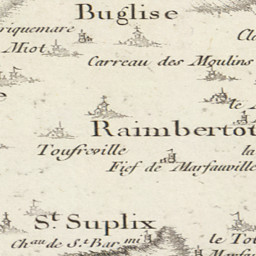 Buglise
riquemare
Miot
Carreau des Moulins
Raimbertot
Toufreville
la
Fief de Marfauville
St Suplix
Chau de St Bar
mi
le To